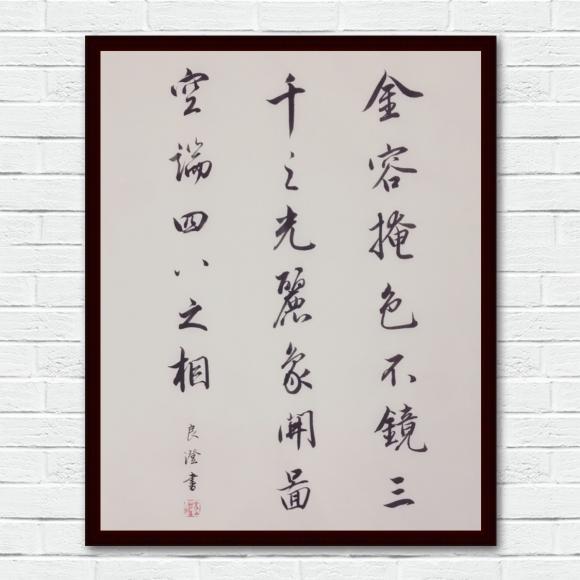 金容掩色不鏡三
千之光麗象開圖
空端四八之相
良澄書